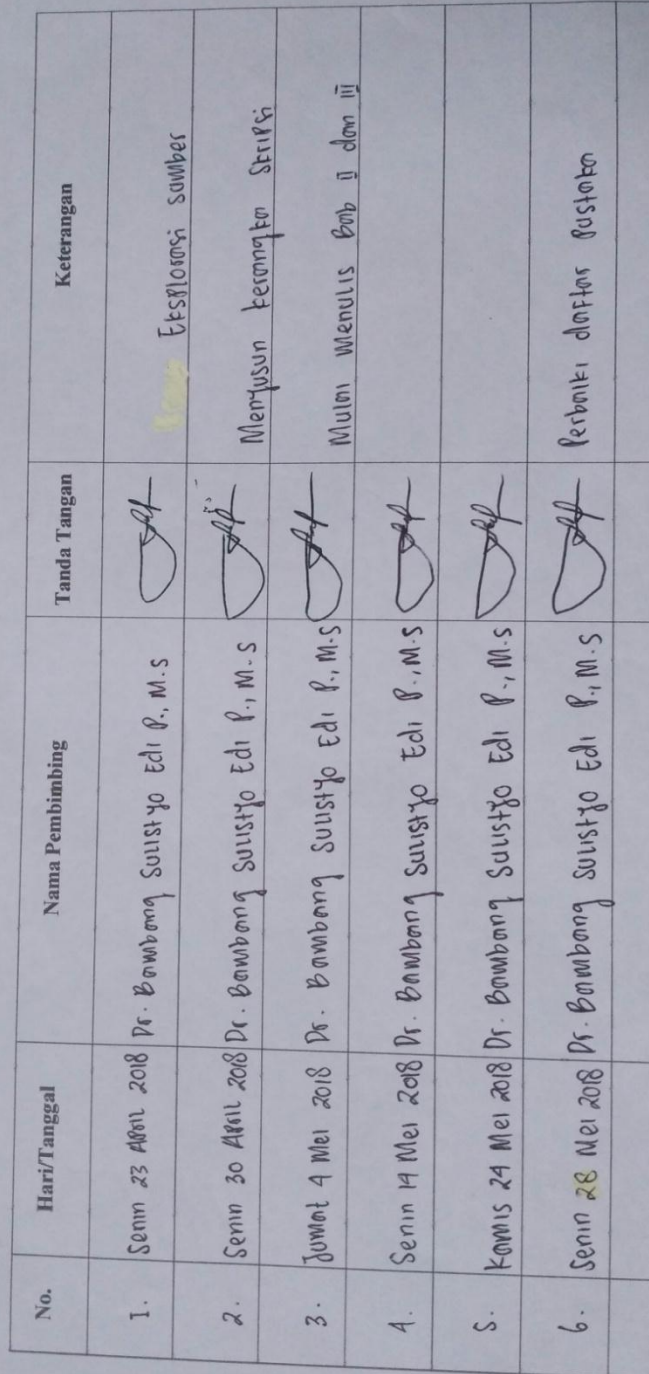 No. Hari/Tanggal Nama Pembimbing Tanda Tangan Keterangan
1. Senin 23 April 2018 Dr. Bambang Sulistyo Edi P., M.S Eksplorasi sumber
2. Senin 30 April 2018 Dr. Bambang Sulistyo Edi P., M.S Menyusun kerangka Skripsi
3. Jumat 4 Mei 2018 Dr. Bambang Sulistyo Edi P., M.S Mulai menulis Bab II dan III
4. Senin 14 Mei 2018 Dr. Bambang Sulistyo Edi P., M.S
5. Kamis 24 Mei 2018 Dr. Bambang Sulistyo Edi P., M.S
6. Senin 28 Mei 2018 Dr. Bambang Sulistyo Edi P., M.S Perbaiki daftar pustaka